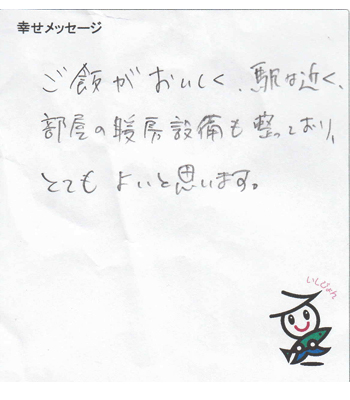 幸せメッセージ
ご飯がおいしく、駅は近く、
部屋の暖房設備も整っており、
とてもよいと思います。
いしぴょん